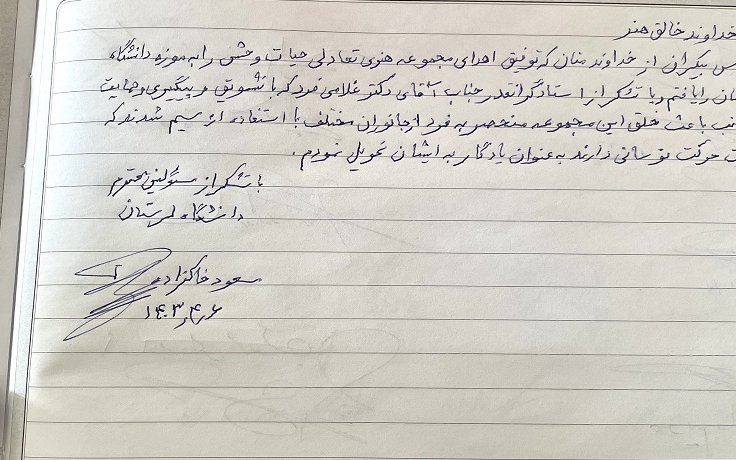 خداوند خالق هنر
س بیکران از خداوند منان که توفیق اهدای مجموعه هنری تعادلی حیات وحش را به موزه دانشگاه
ان را یافتم و با تشکر از استاد گرانقدر جناب آقای دکتر غلامی فرد که با تشویق و پیگیری و حمایت
باعث خلق این مجموعه منحصر به فرد از جانوران مختلف با استفاده از سیم شدند که
ت حرکت نوسانی دارند به عنوان یادگار به ایشان تحویل نمودم.
با تشکر از مسئولین محترم
دانشگاه لرستان
مسعود خاکزاده
۱۴۰۳٫۴٫۶